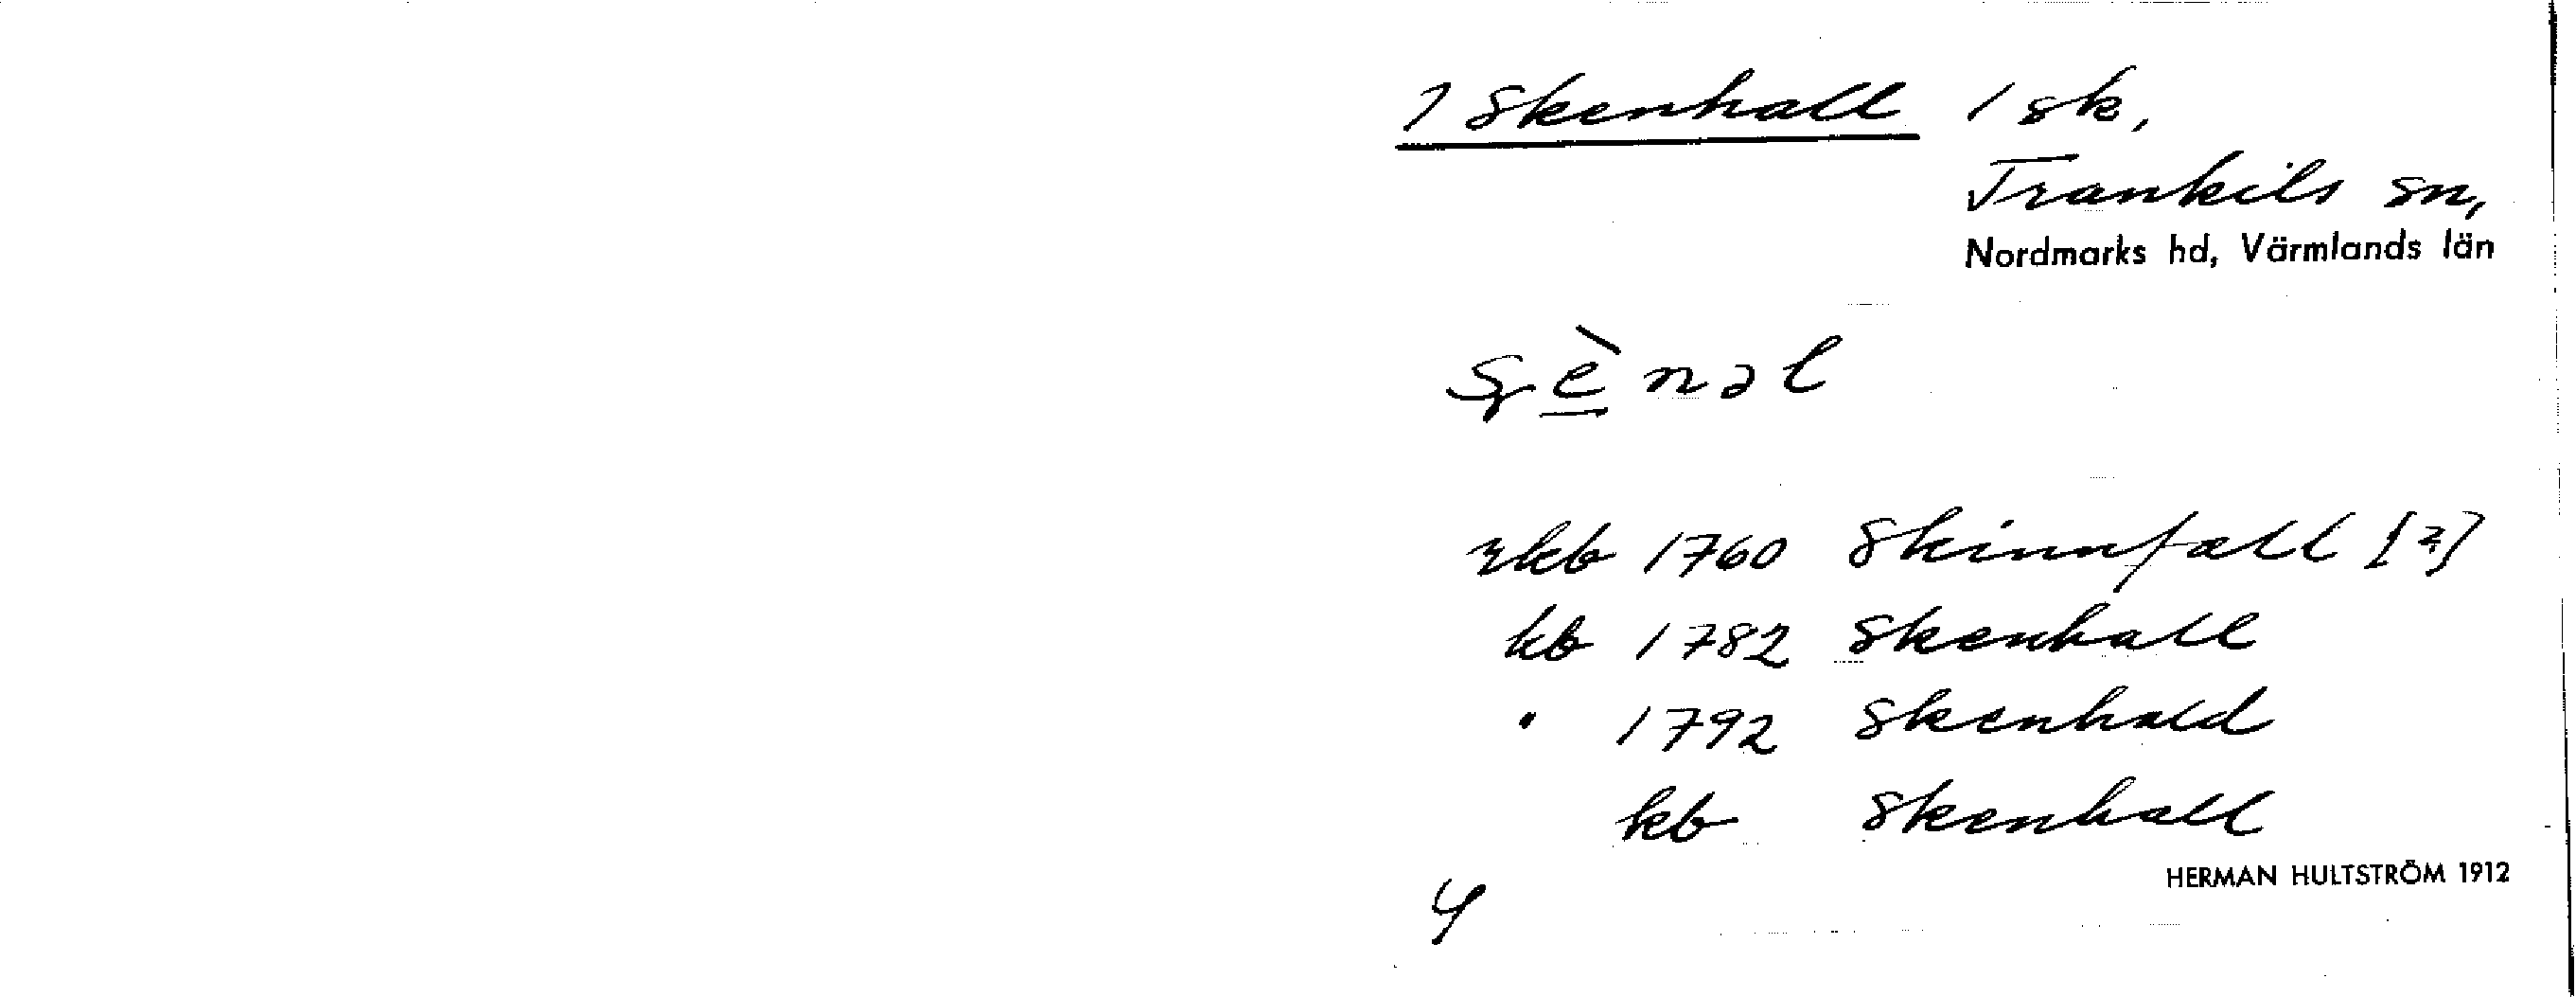 1 Skenhall / sk,
Trankils sn,
Nordmarks hd, Värmlands län
rkb 1760 Skinnfall [?]
kb 1782 Skenhall
" 1792 Skenhald
kb Skenhall
HERMAN HULTSTRÖM 1912
4